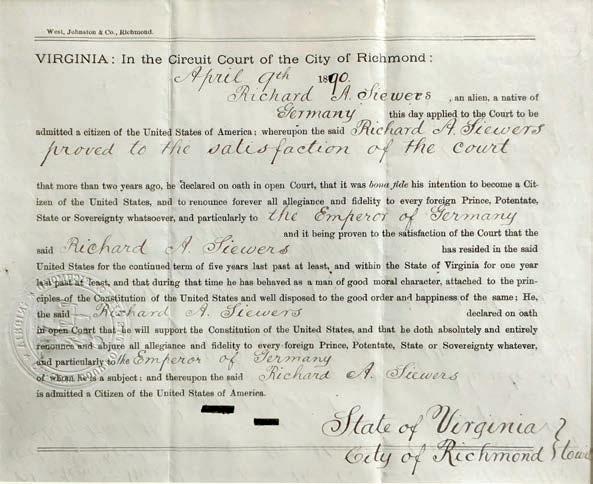 West, Johnston & Co., Richmond.
VIRGINIA: In the Circuit Court of the City of Richmond:
April 9th 1890.
Richard A. Siewers, an alien, a native of
Germany this day applied to the Court to be
admitted a citizen of the United States of America; whereupon the said Richard A. Siewers
proved to the satisfaction of the court
that more than two years ago, he declared on oath in open Court, that it was bona fide his intention to become a Cit-
izen of the United States, and to renounce forever all allegiance and fidelity to every foreign Prince, Potentate,
State or Sovereignty whatsoever, and particularly to the Emperor of Germany
and it being proven to the satisfaction of the Court that the
said Richard A. Siewers has resided in the said
United States for the continued term of five years last past at least, and within the State of Virginia for one year
last past at least, and that during that time he has behaved as a man of good moral character, attached to the prin-
ciples of the Constitution of the United States and well disposed to the good order and happiness of the same; He,
the said Richard A. Siewers declared on oath
in open Court that he will support the Constitution of the United States, and that he doth absolutely and entirely
renounce and abjure all allegiance and fidelity to every foreign Prince, Potentate, State or Sovereignty whatever,
and particularly to the Emperor of Germany
of whom he is a subject; and thereupon the said Richard A. Siewers
is admitted a Citizen of the United States of America.
State of Virginia
City of Richmond } to wit